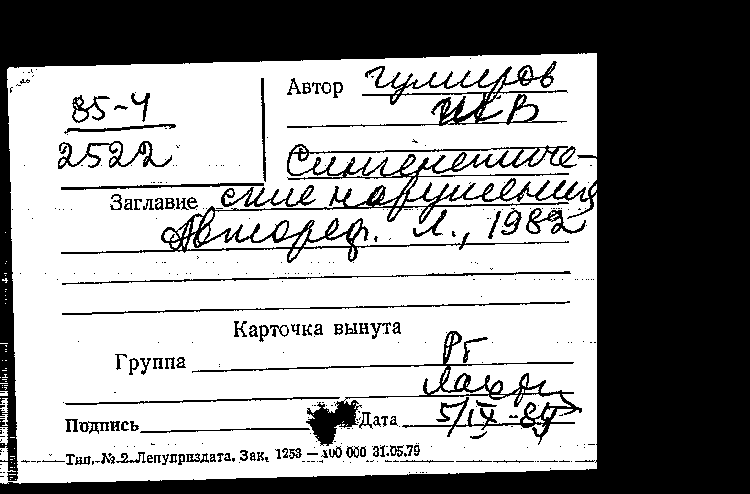 85-4
2522
Автор Гумеров
И К В
Сингенетиче-
Заглавие ские нарушения
Автореф. Л., 1982
Карточка вынута
Группа РГ
Подпись Дата 5/IX-84
Тип. № 2 Ленуприздата. Зак. 1253 — 100 000 31.05.79